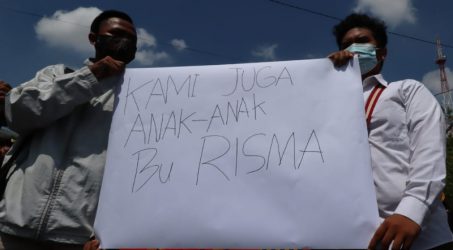 KAMI JUGA
ANAK-ANAK
Bu RISMA